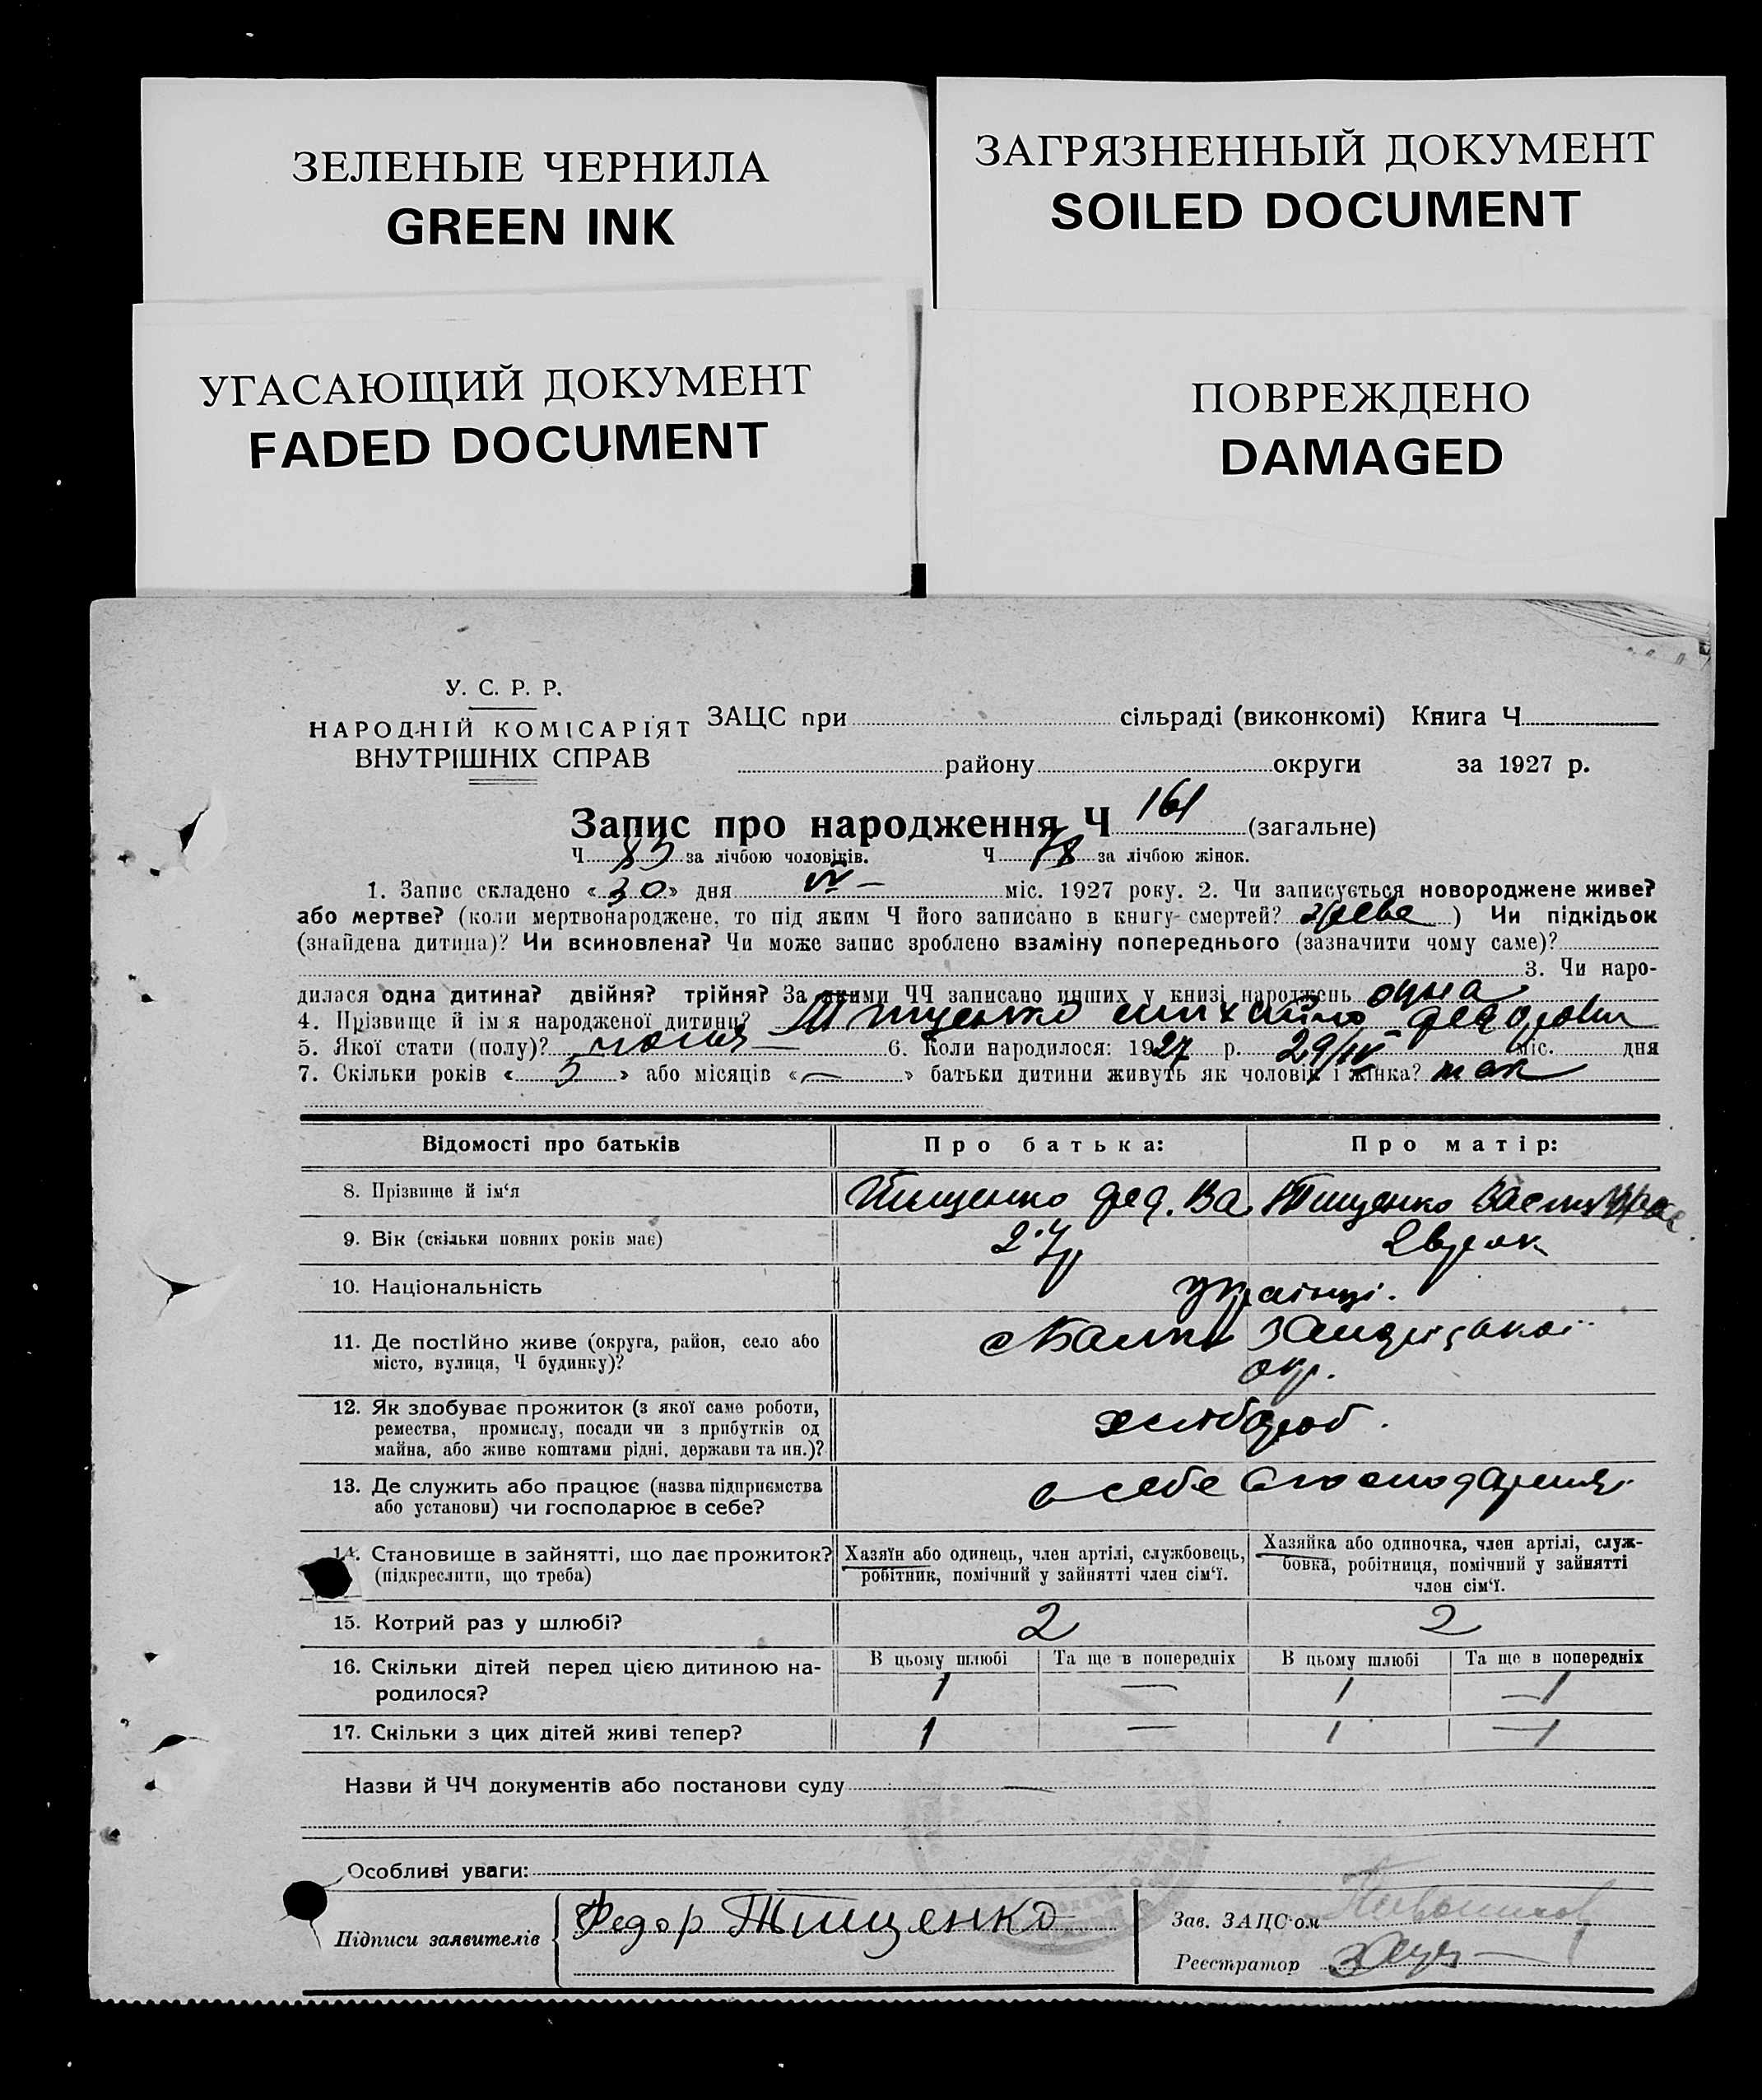 ЗЕЛЕНЫЕ ЧЕРНИЛА
GREEN INK
ЗАГРЯЗНЕННЫЙ ДОКУМЕНТ
SOILED DOCUMENT
УГАСАЮЩИЙ ДОКУМЕНТ
FADED DOCUMENT
ПОВРЕЖДЕНО
DAMAGED
У. С. Р. Р.
НАРОДНІЙ КОМІСАРІЯТ
ВНУТРІШНІХ СПРАВ
ЗАЦС при сільраді (виконкомі) Книга Ч
району округи за 1927 р.
Запис про народження Ч 161 (загальне)
Ч 83 за лічбою чоловіків. Ч 78 за лічбою жінок.
1. Запис складено «30» дня IV — міс. 1927 року. 2. Чи записується новороджене живе?
або мертве? (коли мертвонароджене, то під яким Ч його записано в книгу смертей? живе) Чи підкідьок
(знайдена дитина)? Чи всиновлена? Чи може запис зроблено взаміну попереднього (зазначити чому саме)?
3. Чи наро-
дилася одна дитина? двійня? трійня? За якими ЧЧ записано инших у книзі народжень одна
4. Прізвище й ім'я народженої дитини? Тищенко Михайло Федорович
5. Якої стати (полу)? 6. Коли народилося: 1927 р. 29/IV міс. дня
7. Скільки років «3» або місяців «—» батьки дитини живуть як чоловік і жінка? так
Відомості про батьків
Про батька:
Про матір:
8. Прізвище й ім'я
Тищенко Фед. Ва
Тищенко
9. Вік (скільки повних років має)
27
10. Національність
українці.
11. Де постійно живе (округа, район, село або
місто, вулиця, Ч будинку)?
с Балки Запорізької
окр.
12. Як здобуває прожиток (з якої саме роботи,
ремества, промислу, посади чи з прибутків од
майна, або живе коштами рідні, держави та ин.)?
хлібороб.
13. Де служить або працює (назва підприємства
або установи) чи господарює в себе?
в себе в господарстві
14. Становище в зайнятті, що дає прожиток?
(підкреслити, що треба)
Хазяїн або одинець, член артілі, службовець,
робітник, помічний у зайнятті член сім'ї.
Хазяйка або одиночка, член артілі, служ-
бовка, робітниця, помічний у зайнятті
член сім'ї.
15. Котрий раз у шлюбі?
2
2
16. Скільки дітей перед цією дитиною на-
родилося?
В цьому шлюбі
Та ще в попередніх
В цьому шлюбі
Та ще в попередніх
1 — 1 1
17. Скільки з цих дітей живі тепер?
1 — 1 1
Назви й ЧЧ документів або постанови суду —
Особливі уваги:
Підписи заявителів
Федор Тищенко
Зав. ЗАЦС'ом
Реєстратор